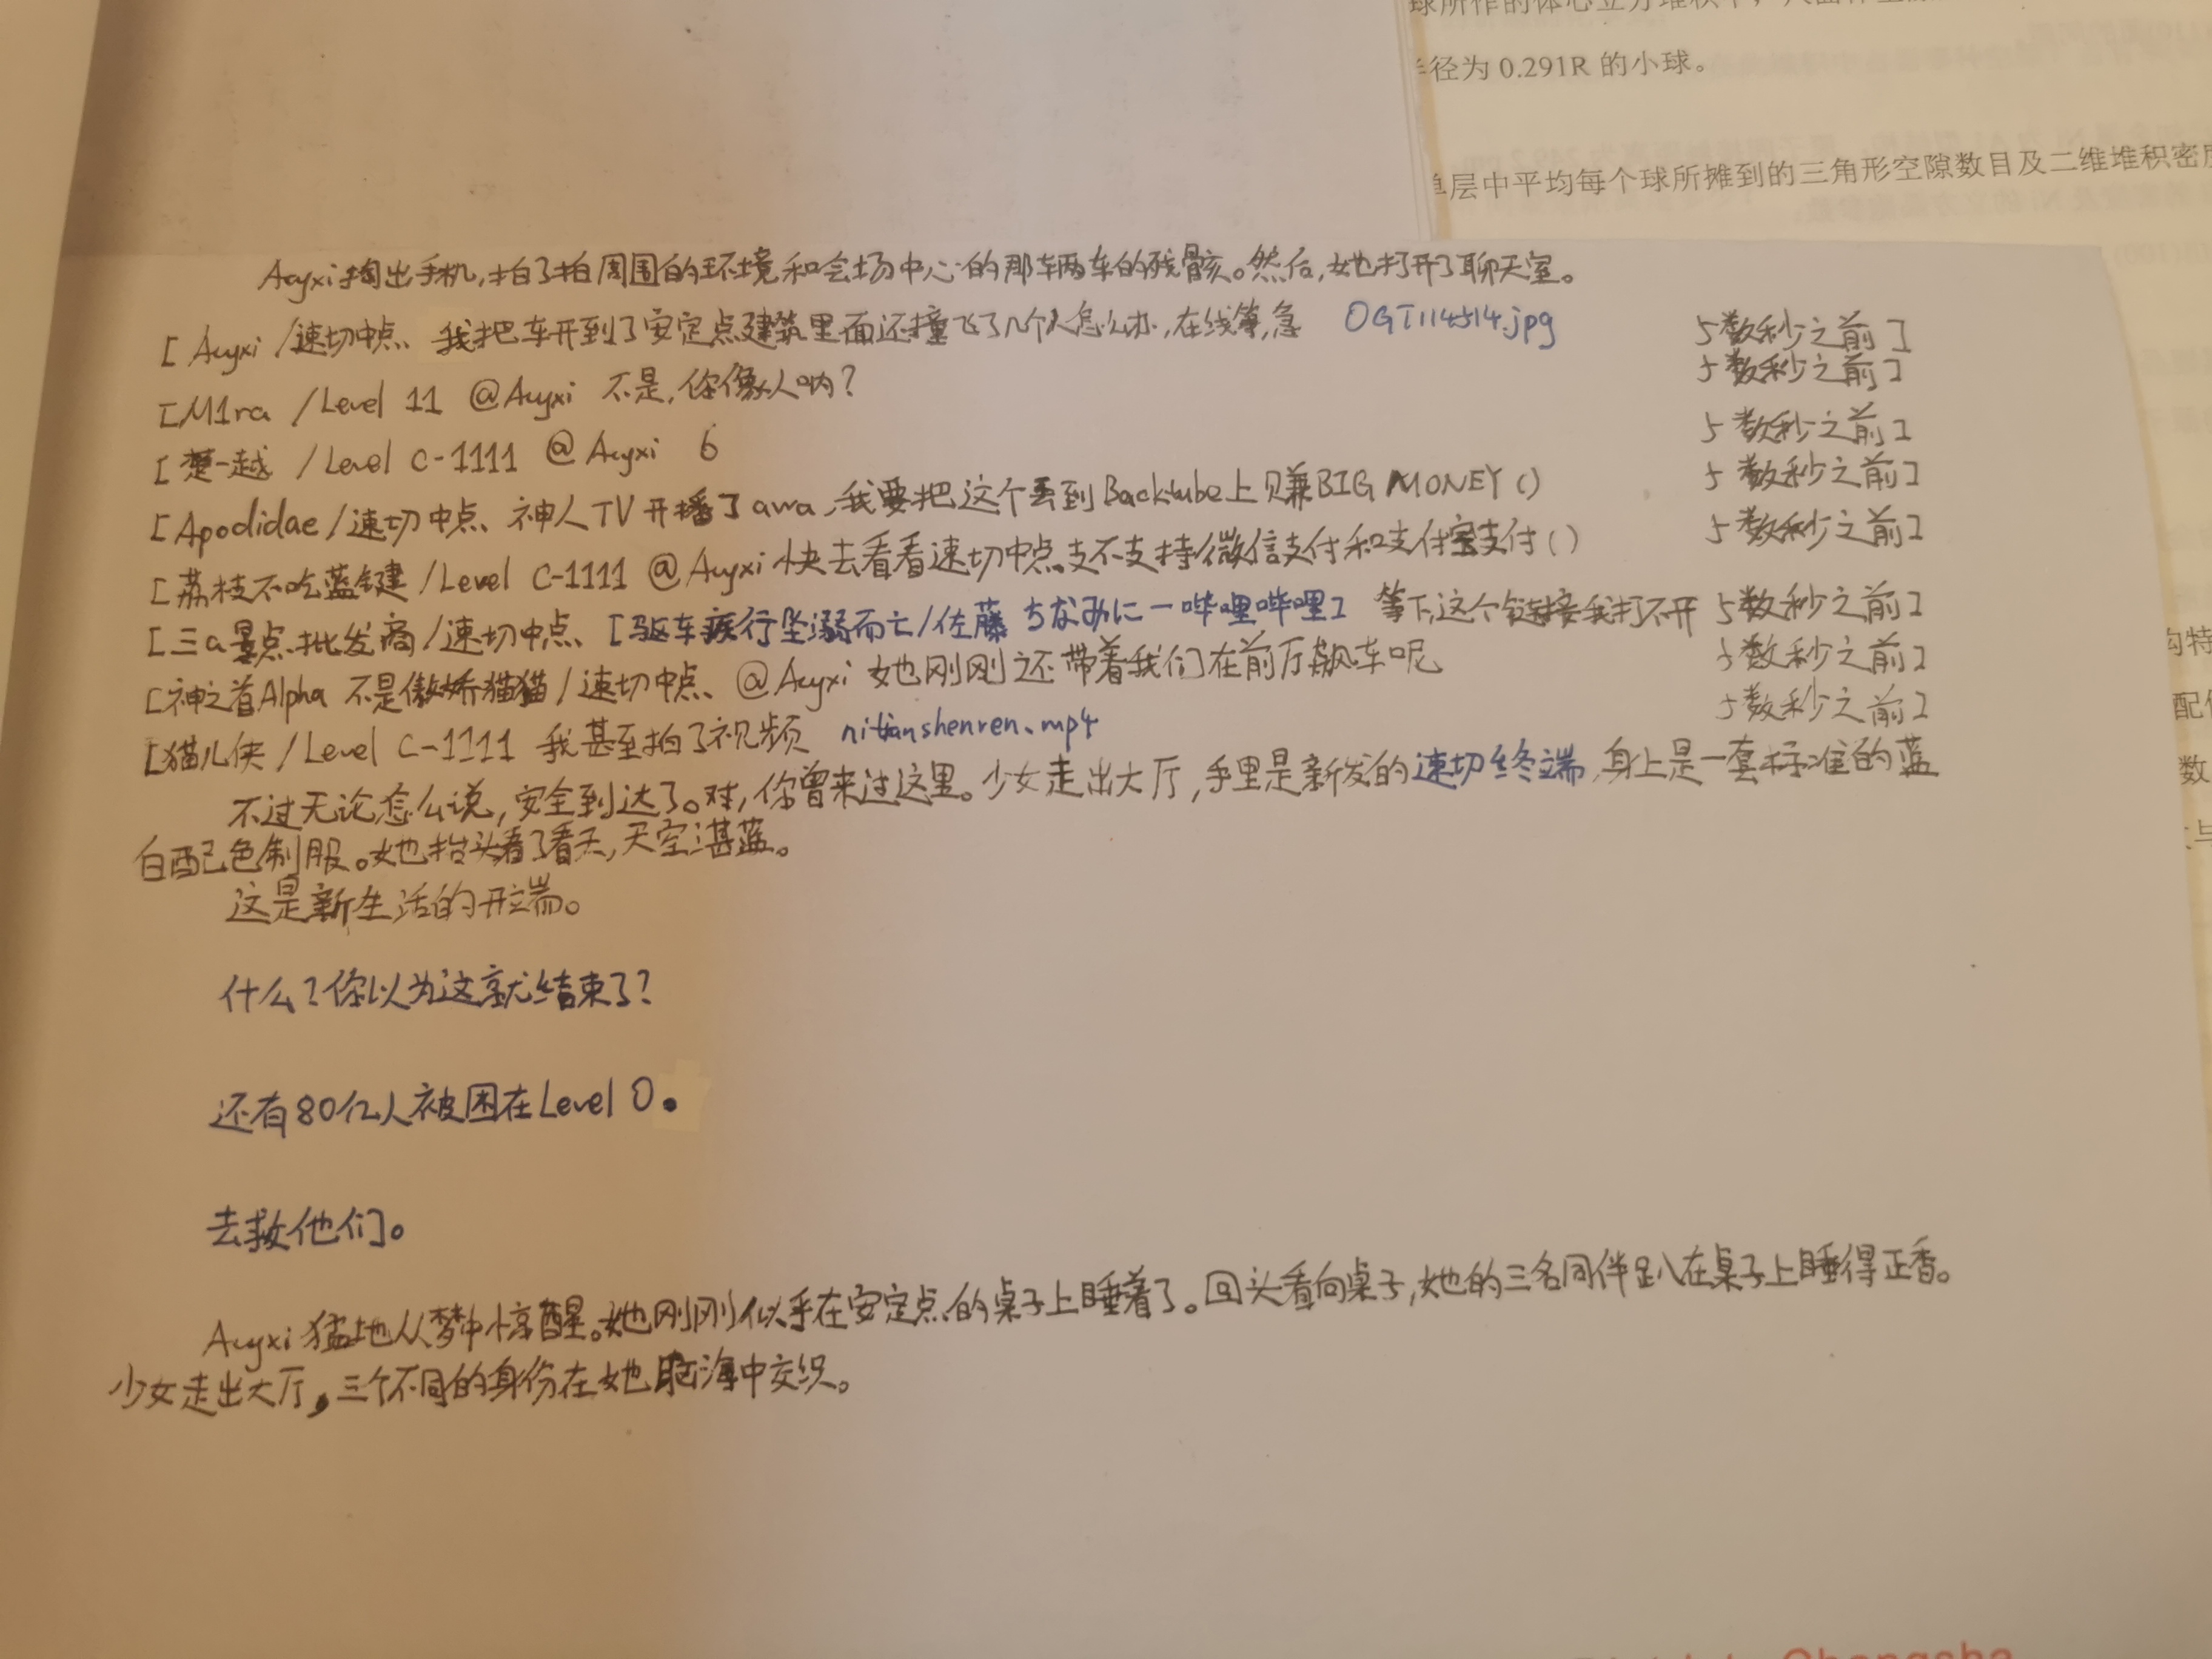 径为 0.291R 的小球。
层中平均每个球所摊到的三角形空隙数目及二维堆积密度
Acyxi掏出手机,拍了拍周围的环境和会场中心的那辆车的残骸。然后,她打开了聊天室。
[ Acyxi /速切中点、我把车开到了安定点建筑里面还撞飞了几个人怎么办,在线等,急 OGT114514.jpg 5数秒之前 ]
[M1ra /Level 11 @Acyxi 不是,你像人呐? 5数秒之前]
[ 楚一越 /Level C-1111 @ Acyxi 6 5数秒之前]
[Apodidae/速切中点、神人TV开播了awa,我要把这个丢到Backtube上赚BIG MONEY() 5数秒之前]
[荔枝不吃蓝键 /Level C-1111 @Acyxi 快去看看速切中点支不支持微信支付和支付宝支付() 5数秒之前]
[三a景点批发商/速切中点、[驱车疾行坠溺而亡/佐藤 ちなみに一哔哩哔哩] 等下,这个链接我打不开 5数秒之前]
[神之首Alpha 不是傲娇猫猫/速切中点、@Acyxi 她刚刚还带着我们在前厅飙车呢 5数秒之前]
[猫儿侠 /Level C-1111 我甚至拍了视频 nitianshenren.mp4 5数秒之前]
不过无论怎么说,安全到达了。对,你曾来过这里。少女走出大厅,手里是新发的速切终端,身上是一套标准的蓝
白配色制服。她抬头看了看天,天空湛蓝。
这是新生活的开端。
什么?你以为这就结束了?
还有80亿人被困在Level 0。
去救他们。
Acyxi 猛地从梦中惊醒。她刚刚似乎在安定点的桌子上睡着了。回头看向桌子,她的三名同伴趴在桌子上睡得正香。
少女走出大厅,三个不同的身份在她脑海中交织。